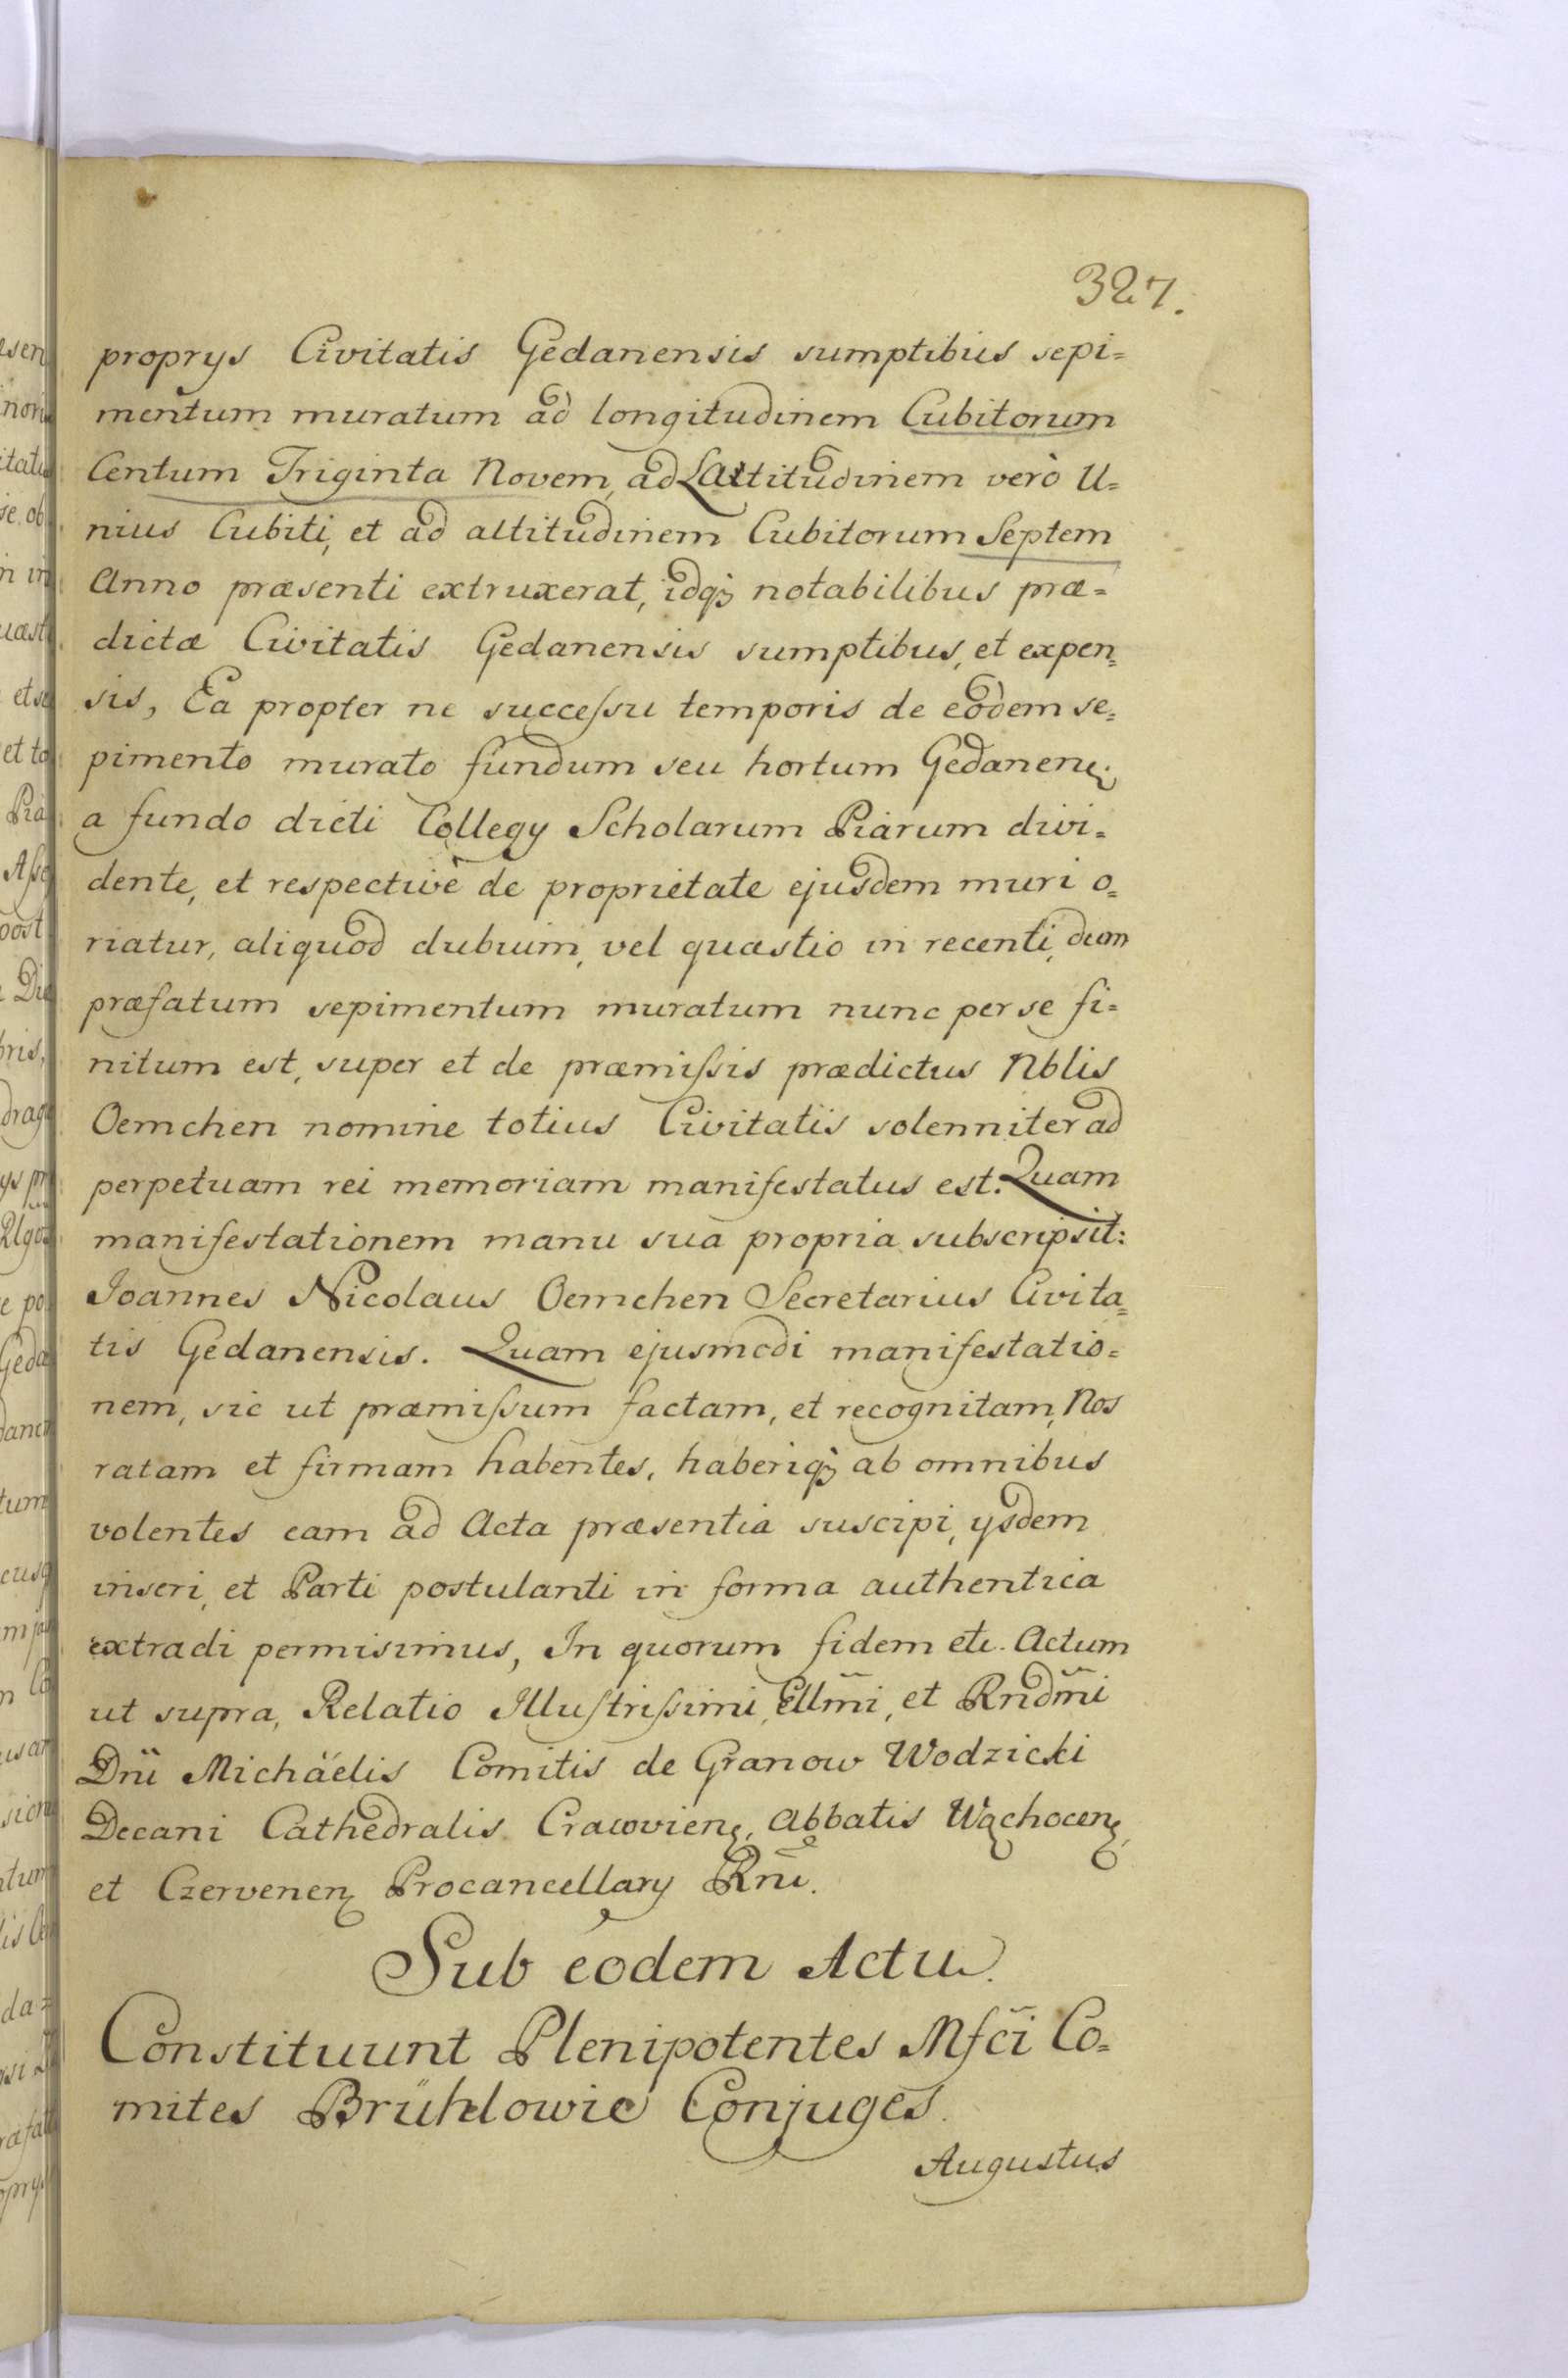 327.
proprys Civitatis Gedanensis sumptibus sepi=
mentum muratum ad longitudinem Cubitorum
Centum Triginta Novem, ad Latitudinem verò U=
nius Cubiti, et ad altitudinem Cubitorum Septem
Anno præsenti extruxerat, idq; notabilibus præ=
dictæ Civitatis Gedanensis sumptibus, et expen=
sis, Ea propter ne successu temporis de eodem se=
pimento murato fundum seu hortum Gedanen:
a fundo dicti Collegy Scholarum Piarum divi=
dente, et respectivè de proprietate ejusdem muri o=
riatur, aliquod dubium, vel quæstio in recenti, dum
præfatum sepimentum muratum nunc per se fi=
nitum est, super et de præmissis prædictus Nblis
Oemchen nomine totius Civitatis solenniter ad
perpetuam rei memoriam manifestatus est. Quam
manifestationem manu sua propria subscripsit:
Joannes Nicolaus Oemchen Secretarius Civita=
tis Gedanensis. Quam ejusmodi manifestatio=
nem, sic ut præmissum factam, et recognitam, Nos
ratam et firmam habentes, haberiq; ab omnibus
volentes eam ad Acta præsentia suscipi, ysdem
inseri, et Parti postulanti in forma authentica
extradi permisimus, In quorum fidem etc. Actum
ut supra, Relatio Illustrissimi, Ellm̃i, et Rndm̃i
Dñi Michäelis Comitis de Granow Wodzicki
Decani Cathedralis Cracovien, Abbatis Wąchocen,
et Czervenen Procancellary Rñi.
Sub eodem Actu.
Constituunt Plenipotentes Mfc̃i Co=
mites Brühlowie Conjuges.
Augustus